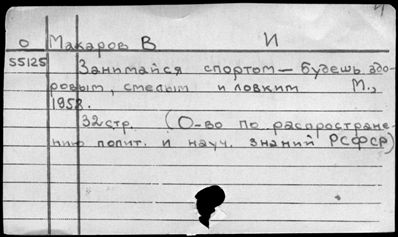 О Макаров В И
55125 Занимайся спортом — будешь здо-
ровым, смелым и ловким М.,
1958.
32стр. (О-во по распростране-
нию полит. и науч. знаний РСФСР)